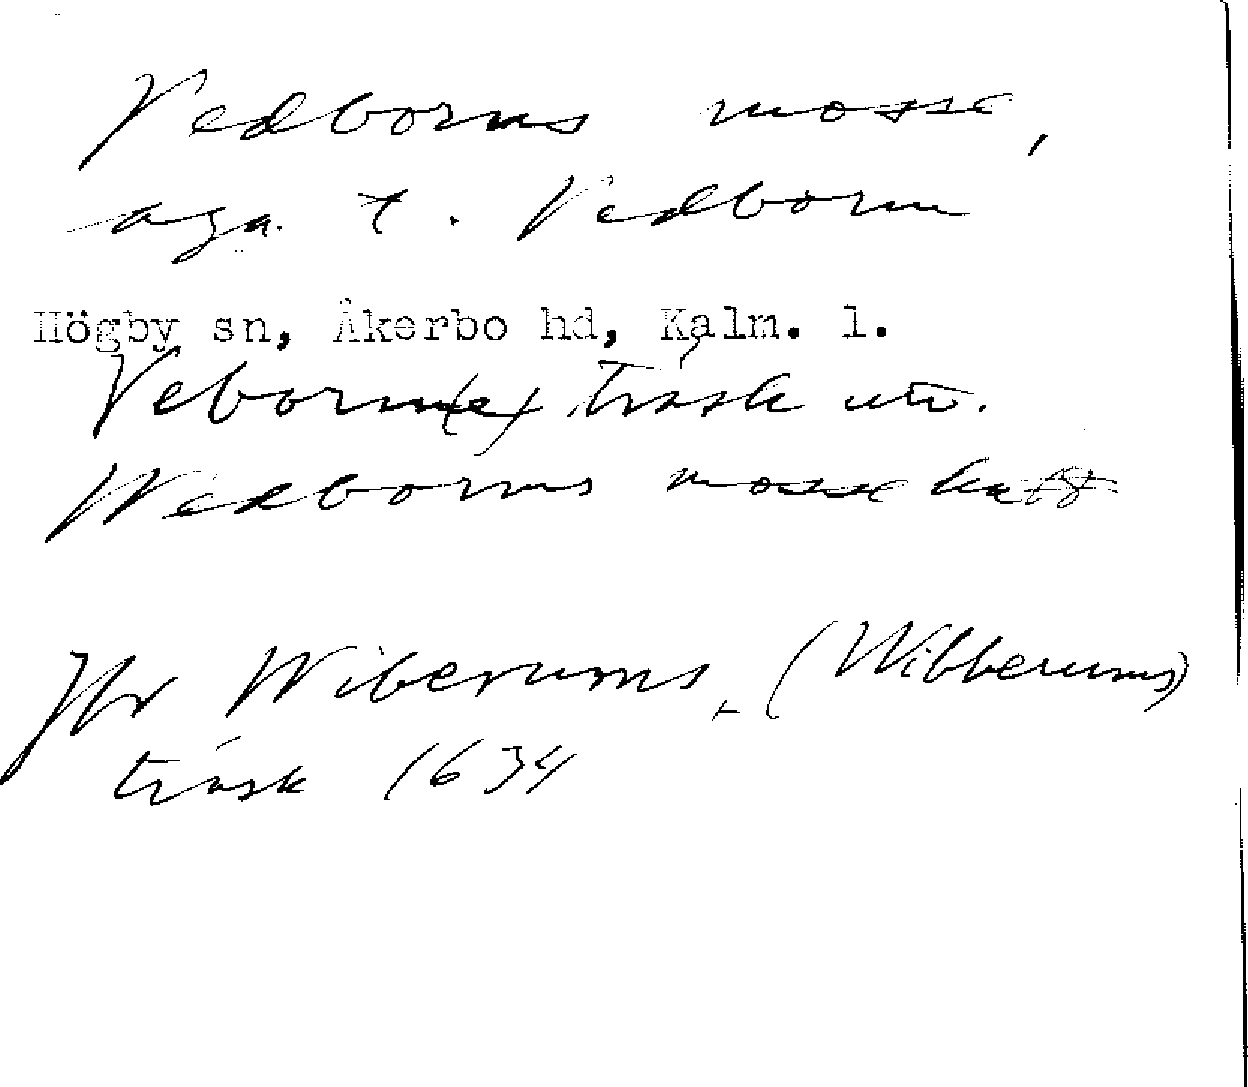 Vedborns mosse,
äga. t. Vedborm
Högby sn, Åkerbo hd, Kalm. l.
Veborm(e) träsk utt.
Wedborms mosse
Jfr Wiberums, (Wibberums)
träsk 1634